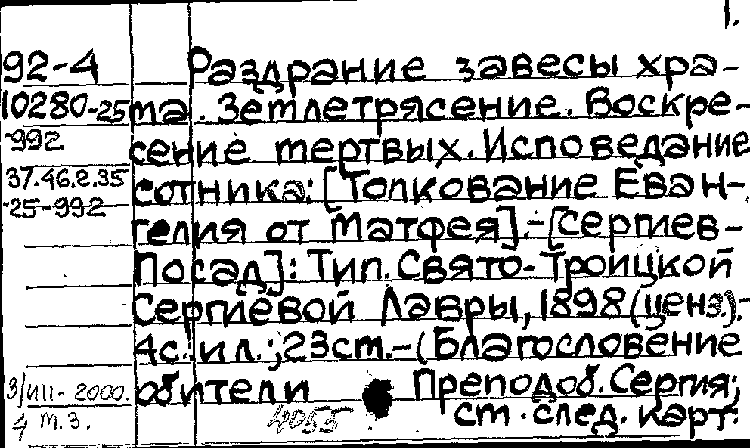 1.
92-4 Раздрание завесы хра-
10280-25 ма. Землетрясение. Воскре-
-992 сение мертвых. Исповедание
37.46.2.35 сотника: [Толкование Еван-
25-992 гелия от Матфея].-[Сергиев-
Посад]: Тип. Свято-Троицкой
Сергиевой Лавры, 1898(ценз.).-
4с.:ил.;23см.-(Благословение
3/VIII-2000. обители Преподоб. Сергия;
4 м.з. 4055 см. след. карт.